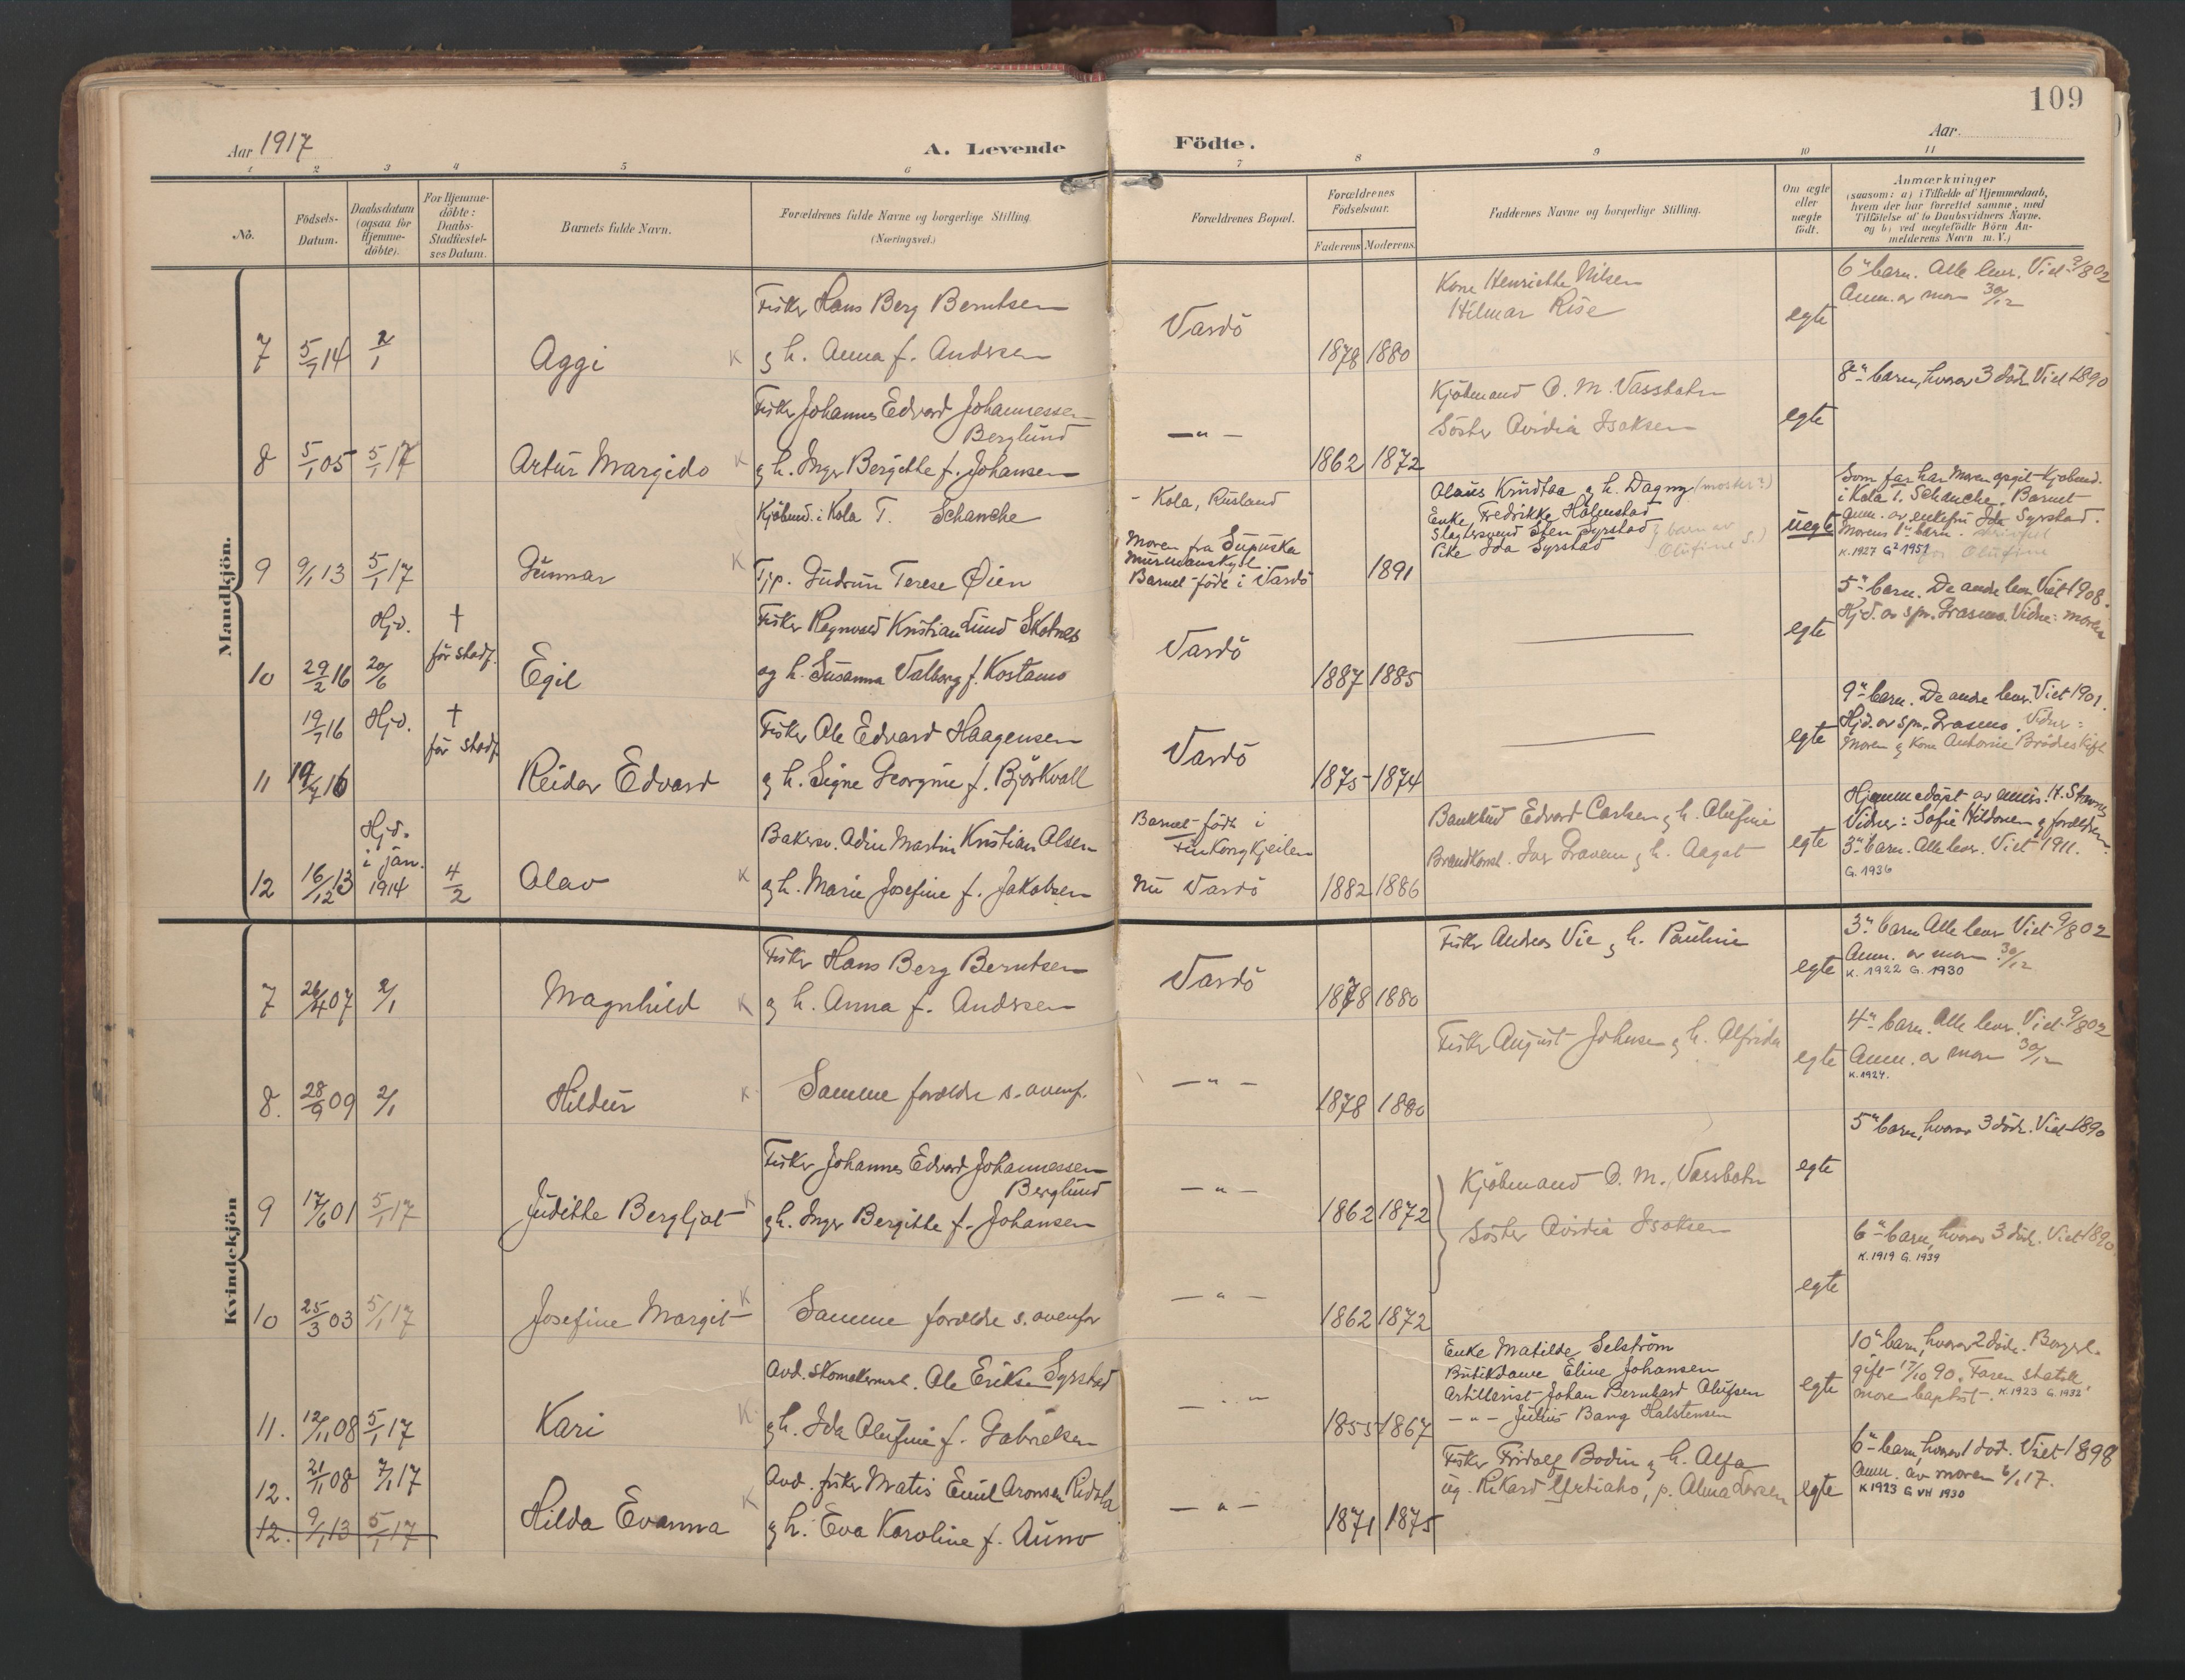 109
Aar 1917
A. Levende
Födte.
Aar
1 2 3 4 5 6 7 8 9 10 11
No.
Födsels-Datum.
Daabsdatum (ogsaa for Hjemme-döbte).
For Hjemme-döbte: Daabs-Stadfæstel-ses Datum.
Barnets fulde Navn.
Forældrenes fulde Navne og borgerlige Stilling.
(Næringsvei.)
Forældrenes Bopæl.
Forældrenes Födselsaar.
Faderens Moderens
Faddernes Navne og borgerlige Stilling.
Om ægte eller uægte födt.
Anmærkninger
(saasom: a) i Tilfælde af Hjemmedaab,
hvem der har forrettet samme, med
Tilföielse af to Daabsvidners Navne,
og b) ved uægtefödte Börn An-
melderens Navn m. V.)
Mandkjön.
7 5/7 14 2/1 Aggi K
Fisker Hans Berg Berntsen
og h. Anna f. Andrsen
Vardö
1878 1880
Kone Henriette Nilsen
Hilmar Rise
egte
6te barn. Alle lever. Viet 9/8 02
Anm. av mor 30/12
8 5/1 05 5/1 17 Artur Margido K
Fisker Johannes Edvard Johannessen
Berglund
og h. Inger Bergitte f. Johansen
— " —
1862 1872
Kjöbmand O. M. Vassbotn
Söster Ovidia Isaksen
egte
8de barn, hvorav 3 död. Viet 1890
9 9/1 13 5/1 17 Gunnar K
Kjöbmd. i Kola T. Schanche
Tjp. Gudrun Terese Øien
- Kola, Rusland
Moren fra Supuska
Murmanskyst.
Barnet födt i Vardö
1891
Olaus Krudtaa og h. Dagny (moster?)
Enke Fredrikke Halmstad
Slagtersvend Sten Syrstad
Pike Ida Syrstad
uegte
Som far har moren opgit kjöbmd.
i Kola T. Schanche. Barnet
anm. av enkefru Ida Syrstad.
Morens 1te barn.
K. 1927 G² 1951
10 29/2 16 Hjd. 20/6 † för stadf. Egil
Fisker Regnvald Kristian Lund Skotnes
og h. Susanna Valborg f. Kostamo
Vardö
1887 1885
egte
5te barn. De andre lever. Viet 1908.
Hjd. av spr. Grasmo. Vidne: moren
11 19/7 16 Hjd. † för stadf.
19/7 16 Reidar Edvard
Fisker Ole Edvard Haagensen
og h. Signe Georgine f. Björkvall
Vardö
1875 1874
egte
9de barn. De andre lever. Viet 1901.
Hjd. av spr. Grasmo. Vidner:
Moren og Kone Antonie Brödreskift
12 16/12 13 Hjd. i jan. 1914 4/2 Olav K
Bakersv. Adin Martin Kristian Olsen
og h. Marie Josefine f. Jakobsen
Barnet födt i
Finkongkjeilen
Nu Vardö
1882 1886
Bankbud Edvard Carlsen og h. Olufine
Brandkonst. Ivar Graven og h. Aagot
egte
Hjemmedöpt av emis. H. Stavne
Vidner: Sofie Hildonen og foreldren.
3dje barn. Alle lever. Viet 1911.
G. 1936
Kvindekjön
7 26/4 07 2/1 Magnhild K
Fisker Hans Berg Berntsen
og h. Anna f. Andrsen
Vardö
1878 1880
Fisker Andreas Vie og h. Pauline
egte
3dje barn Alle lever Viet 9/8 02
Anm. av mor 30/12
K. 1922 G. 1930
8. 28/9 09 2/1 Hildur K
Samme foreldre s. ovenf.
— " —
1878 1880
Fisker August Johnsen og h. Alfrida
egte
4de barn. Alle lever. Viet 9/8 02
Anm. av mor 30/12
K. 1924.
9 17/6 01 5/1 17 Judithe Bergljot K
Fisker Johannes Edvard Johannessen
Berglund
og h. Inger Bergitte f. Johansen
— " —
1862 1872
Kjöbmand O. M. Vassbotn
Söster Ovidia Isaksen
egte
5te barn, hvorav 3 död. Viet 1890
10 25/3 03 5/1 17 Josefine Margit K
Samme foreldre s. ovenfor
— " —
1862 1872
egte
6te barn, hvorav 3 död. Viet 1890
K. 1919 G. 1939
11. 12/11 08 5/1 17 Kari K
Avd. skomakerm. Ole Eriksen Syrstad
og h. Ida Olufine f. Gabrielsen
— " —
1855 1867
Enke Matilde Selström
Butikdame Eline Johansen
Artillerist Johan Bernhard Olufsen
— " — Julius Bang Halstensen
egte
10de barn, hvorav 2 död. Borgerl.
gift 17/10 90. Faren statsk.
more baptist. K. 1923 G. 1932
12. 21/1 08 7/1 17 Hilda Evanna K
12. 9/1 13 5/1 17
Avd. fisker Matis Emil Aronsen Ridola
og h. Eva Karoline f. Auno
— " —
1871 1875
Fisker Fridolf Bodin og h. Alfa
ug. Rikard Yrtiaho, p. Alma Larsen
egte
6te barn, hvorav 1 död. Viet 1898
Anm. av moren 6/1 17.
K 1923 G VH 1930